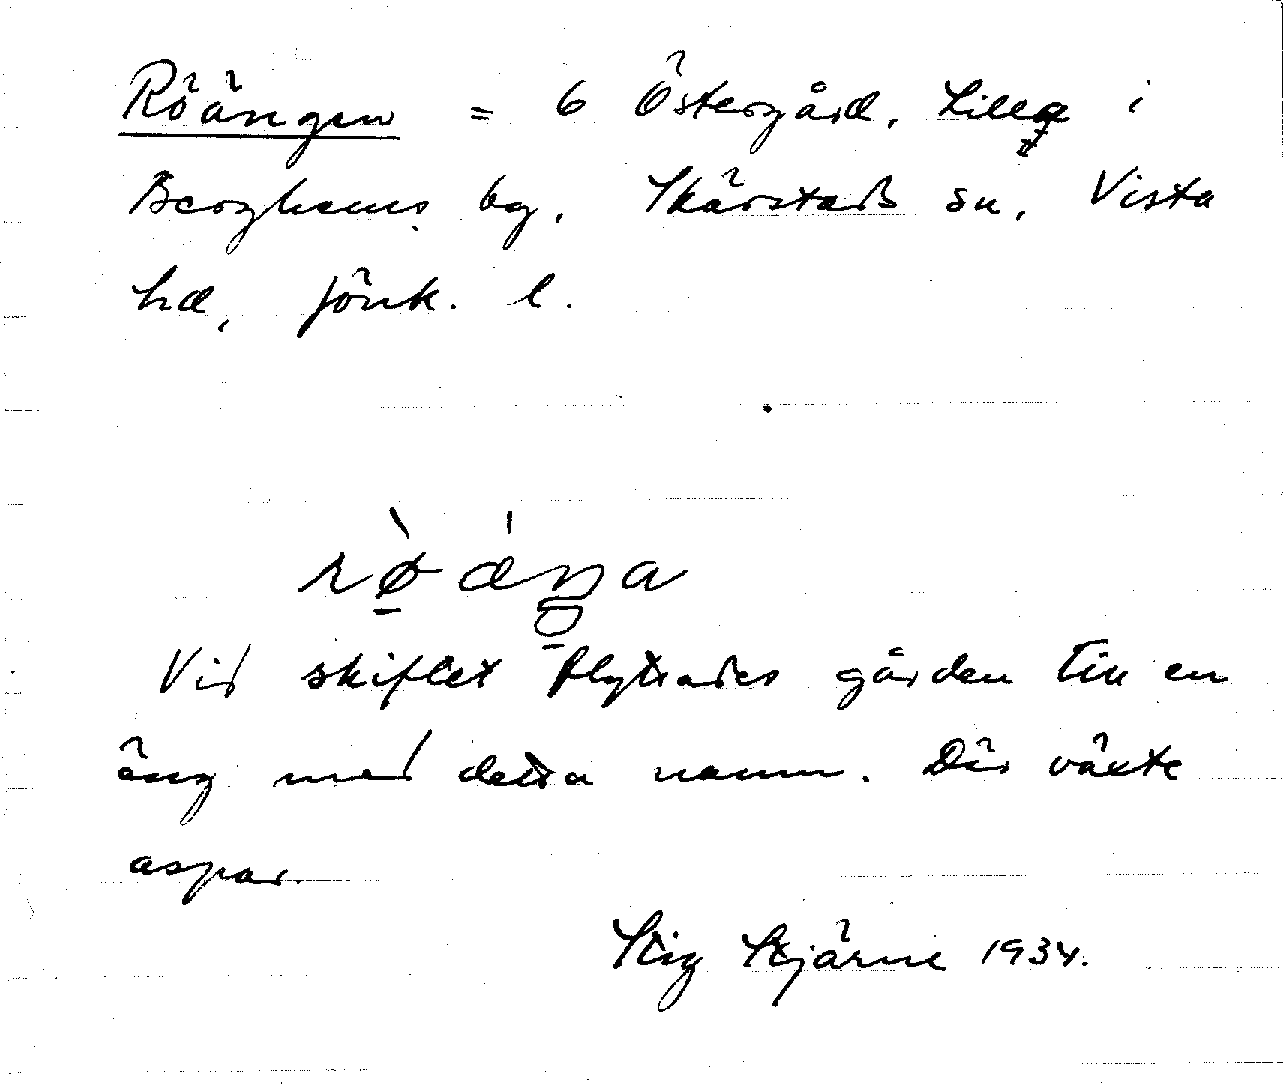 Röängen = 6 Östergård, Lilla i
Berghems by, Skärstads sn, Vista
hd, Jönk. l.
rø̀ ǽŋa
Vid skiftet flyttades gården till en
äng med detta namn. Där växte
aspar.
Stig Stjärne 1934.